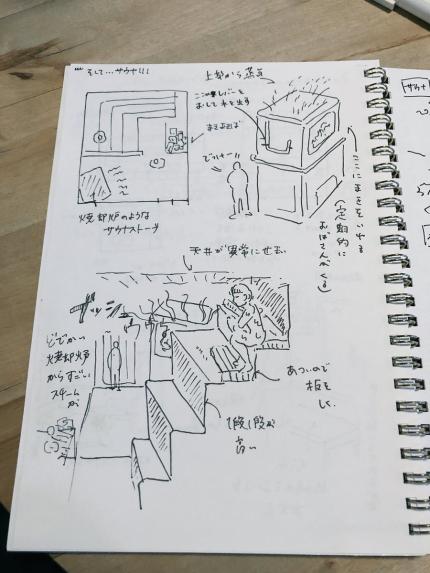 そして…サウナ!!!
上部から蒸気
この黒レバーを
おして水を出す
でけェー!!
ここにまきをいれる
(定期的に
おばさんがくる)
焼却炉のような
サウナストーブ
天井が異常に せまい
どでかい
焼却炉
からすごい
スチーム
が
あついので
板を
しく
1段1段が
高い
サウナ